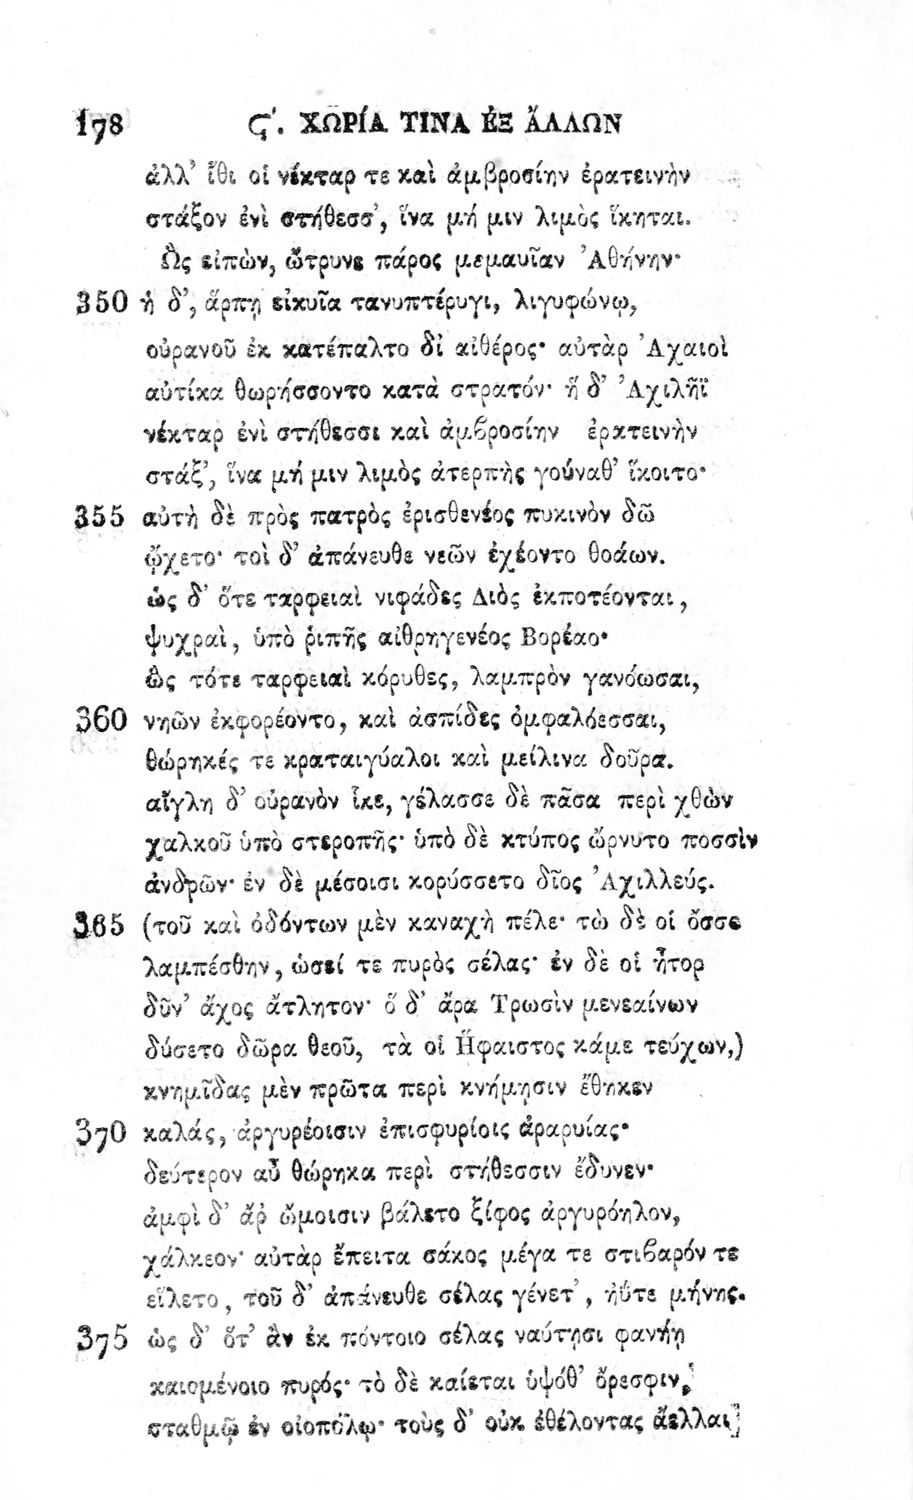 178 Ϛʹ. ΧΩΡΊΑ ΤΙΝΑ ἘΞ ἌΛΛΩΝ
ἀλλ' ἴθι οἱ νέκταρ τε καὶ ἀμβροσίην ἐρατεινὴν
στάξον ἐνὶ στήθεσσ', ἵνα μή μιν λιμὸς ἵκηται.
Ὣς εἰπὼν, ὤτρυνε πάρος μεμαυῖαν Ἀθήνην·
350 ἡ δ', ἅρπῃ εἰκυῖα τανυπτέρυγι, λιγυφώνῳ,
οὐρανοῦ ἐκ κατέπαλτο δι' αἰθέρος· αὐτὰρ Ἀχαιοὶ
αὐτίκα θωρήσσοντο κατὰ στρατόν· ἥ δ' Ἀχιλῆϊ
νέκταρ ἐνὶ στήθεσσι καὶ ἀμϐροσίην ἐρατεινὴν
στάξ', ἵνα μή μιν λιμὸς ἀτερπὴς γούναθ' ἵκοιτο·
355 αὐτὴ δὲ πρὸς πατρὸς ἐρισθενέος πυκινὸν δῶ
ᾤχετο· τοὶ δ' ἀπάνευθε νεῶν ἐχέοντο θοάων.
ὡς δ' ὅτε ταρφειαὶ νιφάδες Διὸς ἐκποτέονται,
ψυχραὶ, ὑπὸ ῥιπῆς αἰθρηγενέος Βορέαο·
ὣς τότε ταρφειαὶ κόρυθες, λαμπρὸν γανόωσαι,
360 νηῶν ἐκφορέοντο, καὶ ἀσπίδες ὀμφαλόεσσαι,
θώρηκές τε κραταιγύαλοι καὶ μείλινα δοῦρα.
αἴγλη δ' οὐρανὸν ἷκε, γέλασσε δὲ πᾶσα περὶ χθὼν
χαλκοῦ ὑπὸ στεροπῆς· ὑπὸ δὲ κτύπος ὤρνυτο ποσσὶν
ἀνδρῶν· ἐν δὲ μέσοισι κορύσσετο δῖος Ἀχιλλεύς.
365 (τοῦ καὶ ὀδόντων μὲν καναχὴ πέλε· τὼ δέ οἱ ὄσσε
λαμπέσθην, ὡσεί τε πυρὸς σέλας· ἐν δέ οἱ ἦτορ
δῦν' ἄχος ἄτλητον· ὅ δ' ἄρα Τρωσὶν μενεαίνων
δύσετο δῶρα θεοῦ, τὰ οἱ Ἥφαιστος κάμε τεύχων,)
κνημῖδας μὲν πρῶτα περὶ κνήμῃσιν ἔθηκεν
370 καλάς, ἀργυρέοισιν ἐπισφυρίοις ἀραρυίας·
δεύτερον αὖ θώρηκα περὶ στήθεσσιν ἔδυνεν·
ἀμφὶ δ' ἄρ' ὤμοισιν βάλετο ξίφος ἀργυρόηλον,
χάλκεον· αὐτὰρ ἔπειτα σάκος μέγα τε στιϐαρόν τε
εἵλετο, τοῦ δ' ἀπάνευθε σέλας γένετ', ἠΰτε μήνης.
375 ὡς δ' ὅτ' ἂν ἐκ πόντοιο σέλας ναύτῃσι φανήῃ
καιομένοιο πυρός· τὸ δὲ καίεται ὑψόθ' ὄρεσφιν,
σταθμῷ ἐν οἰοπόλῳ· τοὺς δ' οὐκ ἐθέλοντας ἄελλαι